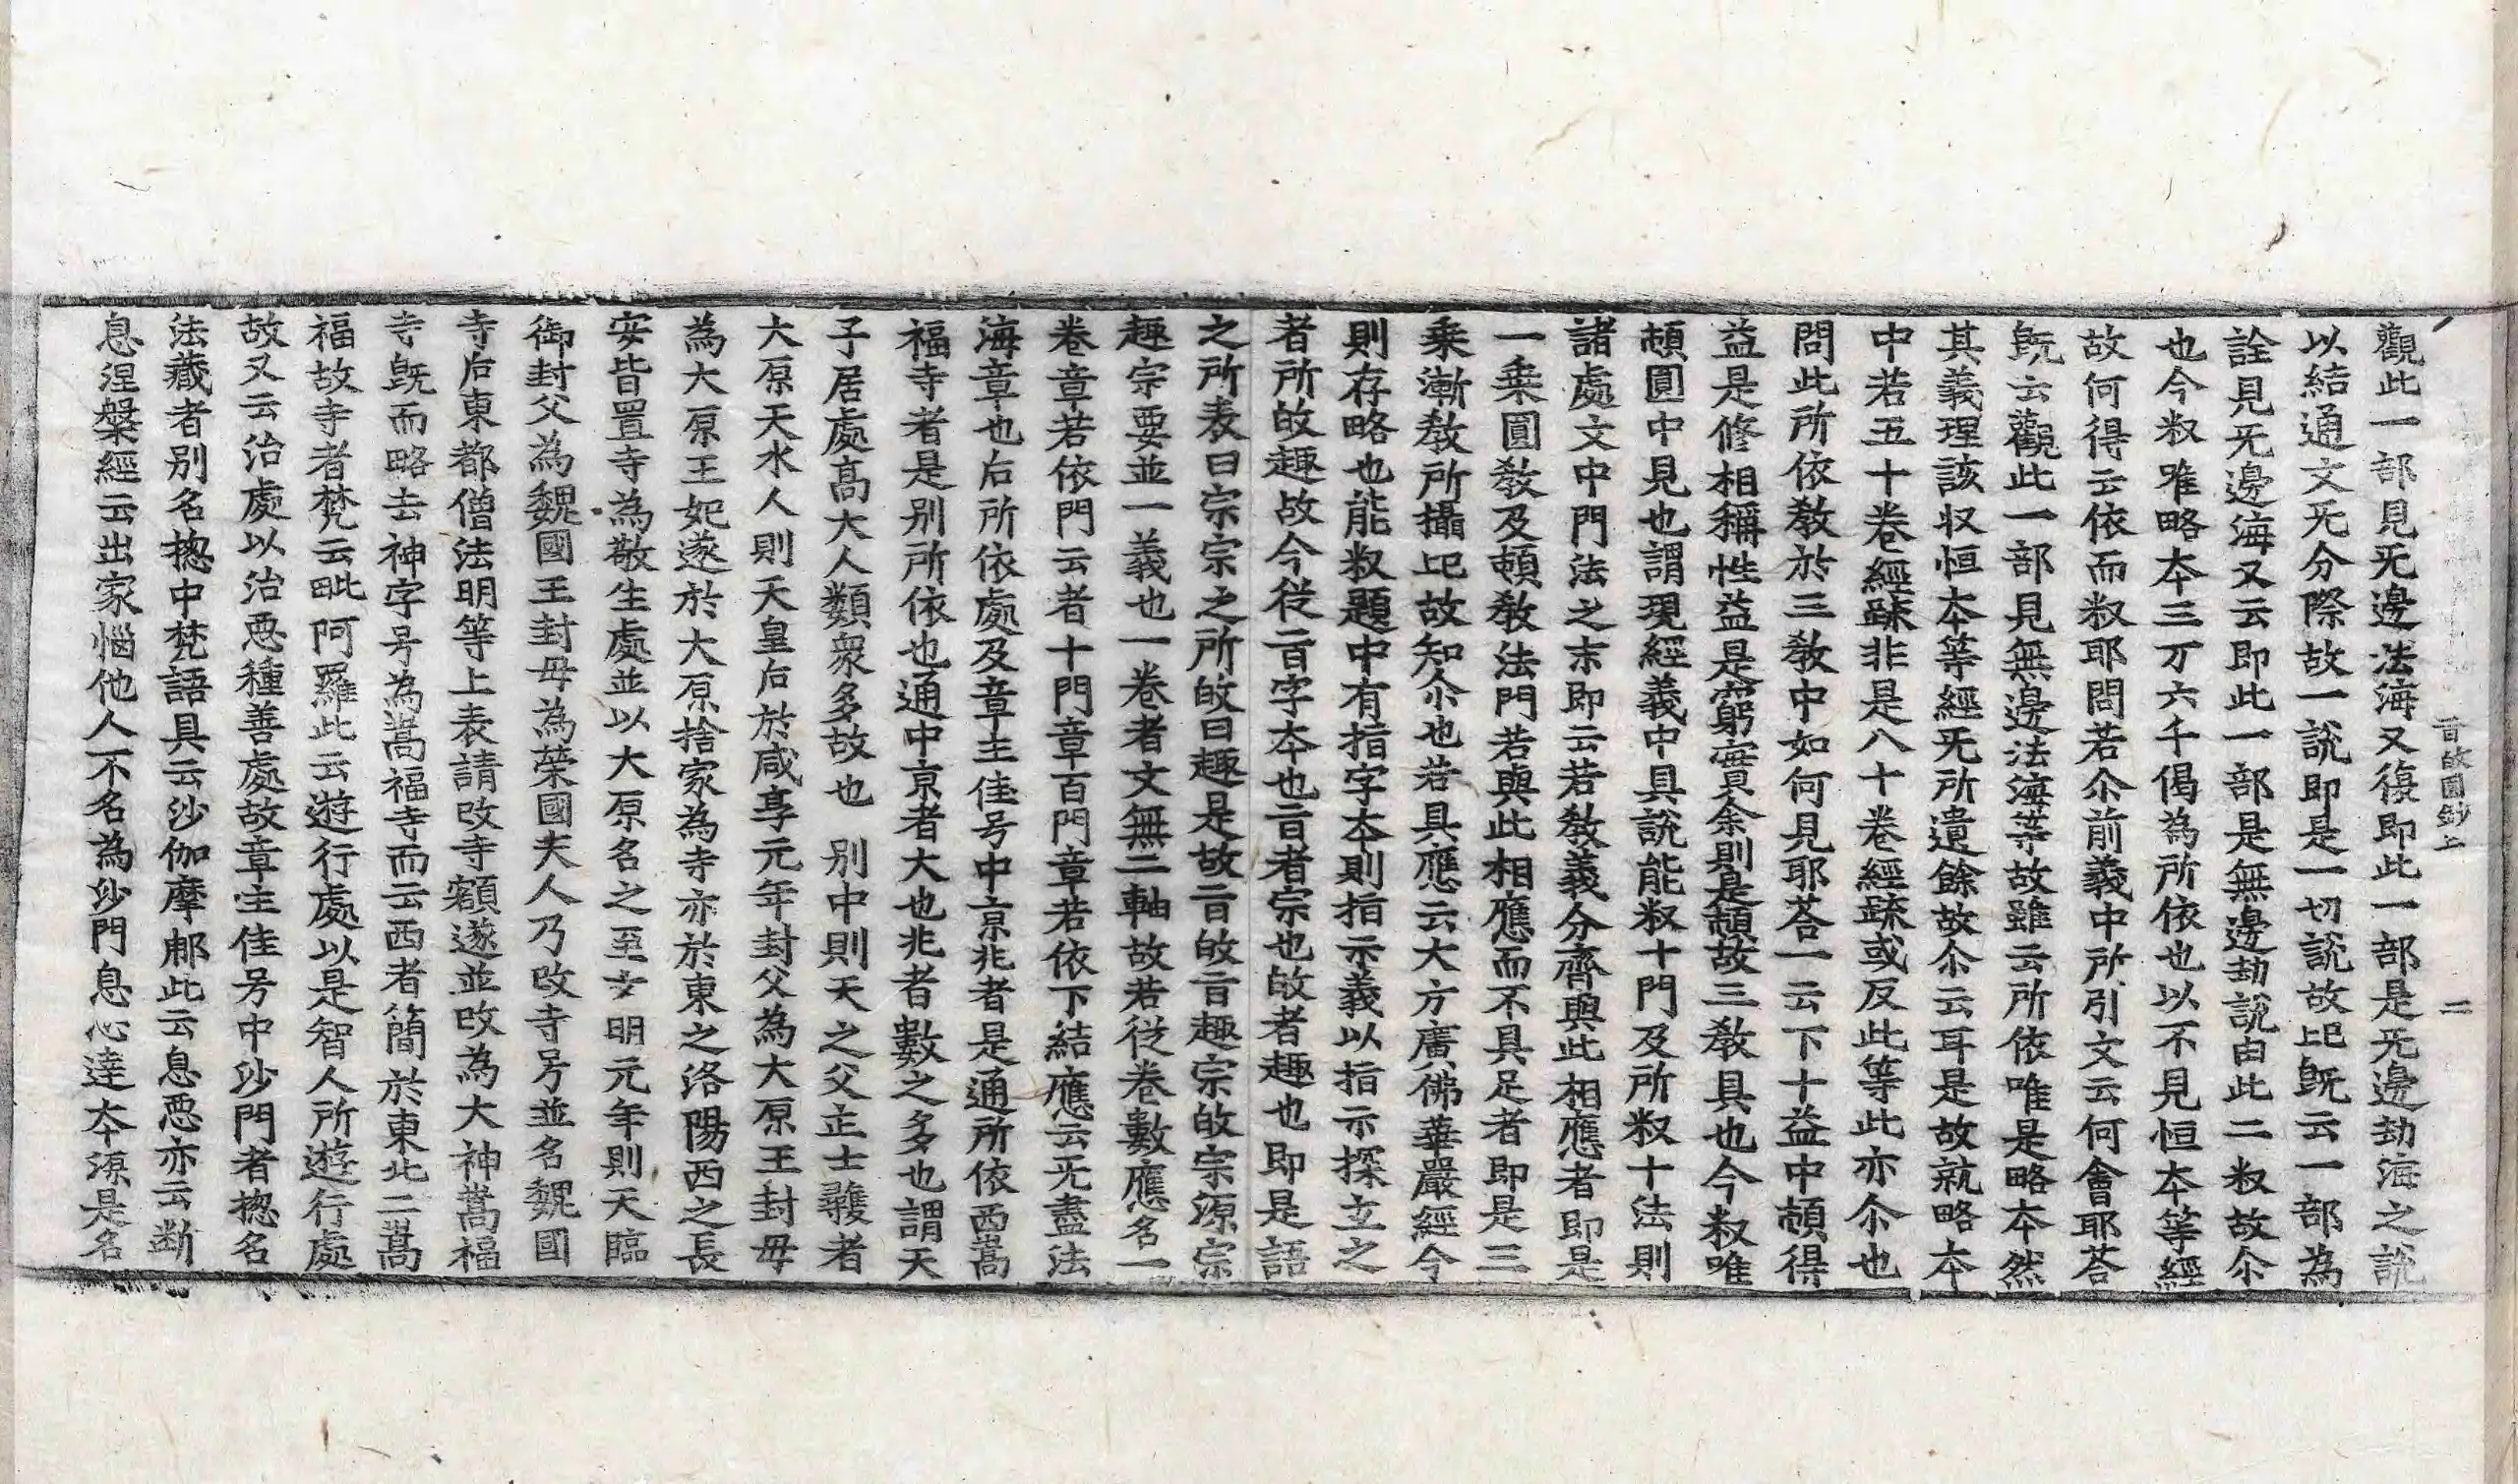 觀此一部見旡邊法海又復即此一部是旡邊劫海之說
旨皈圓鈔上 二
以結通文旡分際故一說即是一切說故㠯既云一部為
詮見旡邊海又云即此一部是無邊劫說由此二教故尒
也今叙唯略夲三万六千偈為所依也以不見恒夲等經
故何得云依而叙耶問若尒前義中所引文云何會耶荅
既云觀此一部見無邊法海等故雖云所依唯是略夲然
其義理該収恒夲等經旡所遺餘故尒云耳是故就略夲
中若五十卷經䟽非是八十卷經䟽或反此等此亦尒也
問此所依教於三教中如何見耶荅一云下十益中頓得
益是修相稱性益是窮實余則是頓故三教具也今叙唯
頓圓中見也謂現經義中具說能叙十門及所叙十法則
諸處文中門法之末即云若教義分齊與此相應者即是
一乗圓教及頓教法門若與此相應而不具足者即是三
乗漸教所攝㠯故知尒也若具應云大方廣佛華嚴經今
則存略也能叙題中有指字夲則指示義以指示探立之
者所皈趣故今従旨字夲也旨者宗也皈者趣也即是語
之所表曰宗宗之所皈曰趣是故旨皈言旨趣宗皈宗源宗
趣宗要並一義也一卷者文無二軸故若従卷數應名一
卷章若依門云者十門章百門章若依下結應云旡盡法
海章也后所依處及章主佳号中京兆者是通所依西嵩
福寺者是别所依也通中京者大也兆者數之多也謂天
子居處高大人類衆多故也 别中則天之父正士彠者
大原天水人則天皇后於咸享元年封父為大原王封毋
為大原王妃遂於大原捨家為寺亦於東之洛陽西之長
安皆置寺為敬生處並以大原名之至𡥉明元年則天臨
御封父為魏國王封毋為榮國夫人乃改寺号並名魏國
寺后東都僧法明等上表請改寺額遂並改為大神嵩福
寺既而略去神字号為嵩福寺而云西者簡於東此二嵩
福故寺者梵云毗阿羅此云遊行處以是智人所遊行處
故又云治處以治悪種善處故章主佳号中沙門者揔名
法藏者别名揔中梵語具云沙伽摩那此云息悪亦云断
息涅槃經云出家惱他人不名為沙門息心達夲源是名